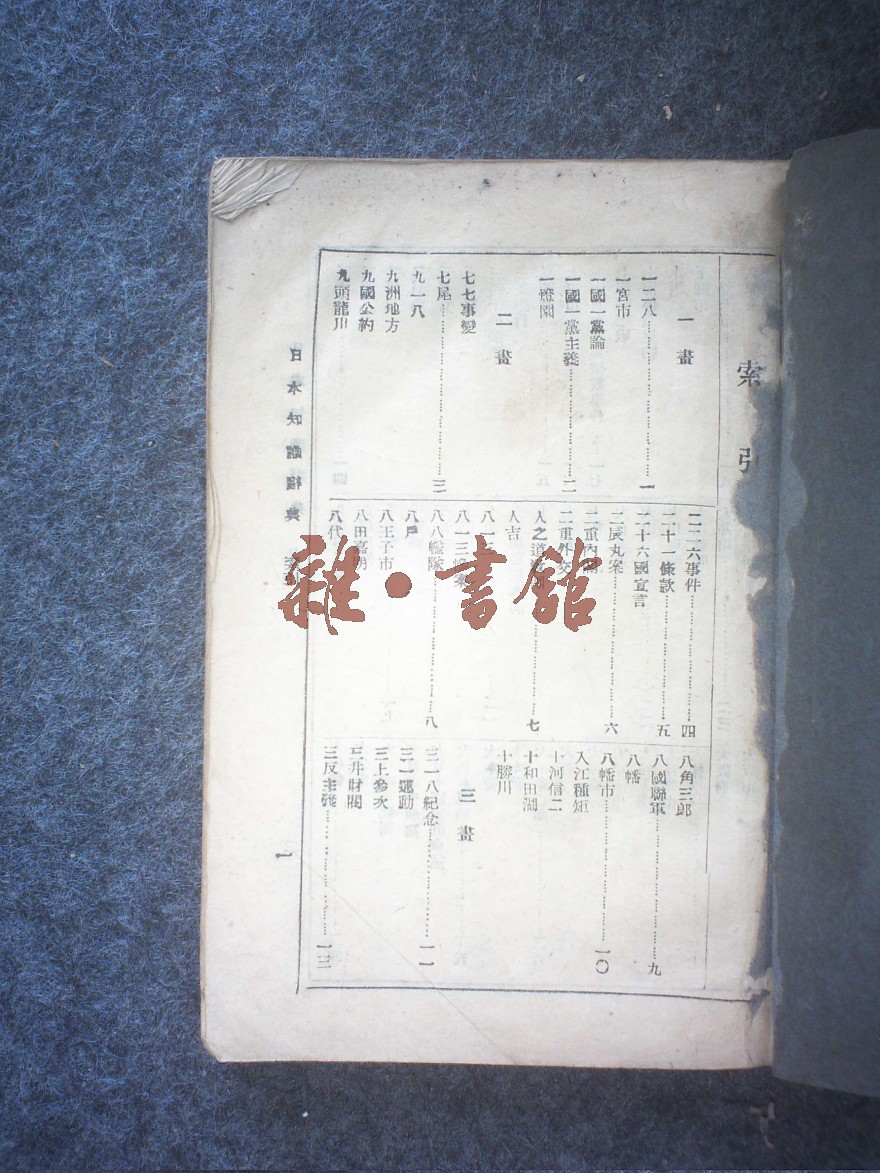 索引
一畫
一二八……一
一宮市
一國一黨論
一國一黨主義……二
一燈園
二畫
七七事變
七尾……三
九一八
九洲地方
九國公約
九頭龍川
二二六事件……四
二十一條款……五
二十六國宣言
二辰丸案……六
二重內閣
二重外交
人之道……七
人吉
八一三
八八艦隊……八
八戶
八王子市
八田嘉明
八代
八角三郎
八國聯軍……九
八幡
八幡市……一〇
入江種矩
十河信二
十和田湖
十勝川
三畫
三一八紀念……一一
三一運動
三上參次
三井財閥
三反主義……一二
日本
一
雜·書館